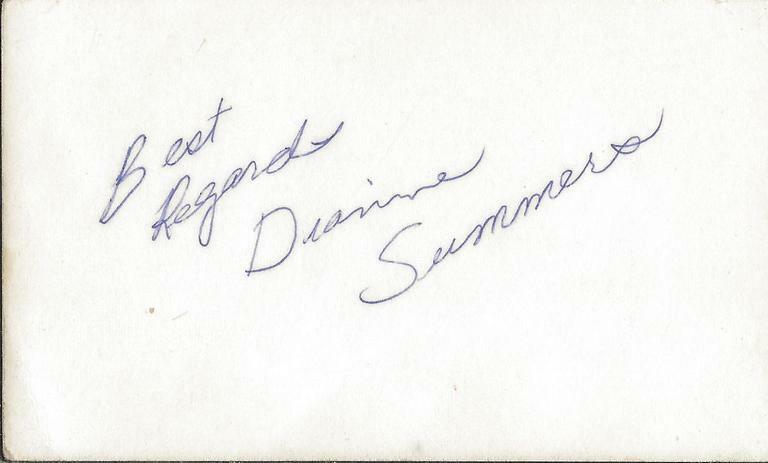 Best
Regards
Dianne
Summers